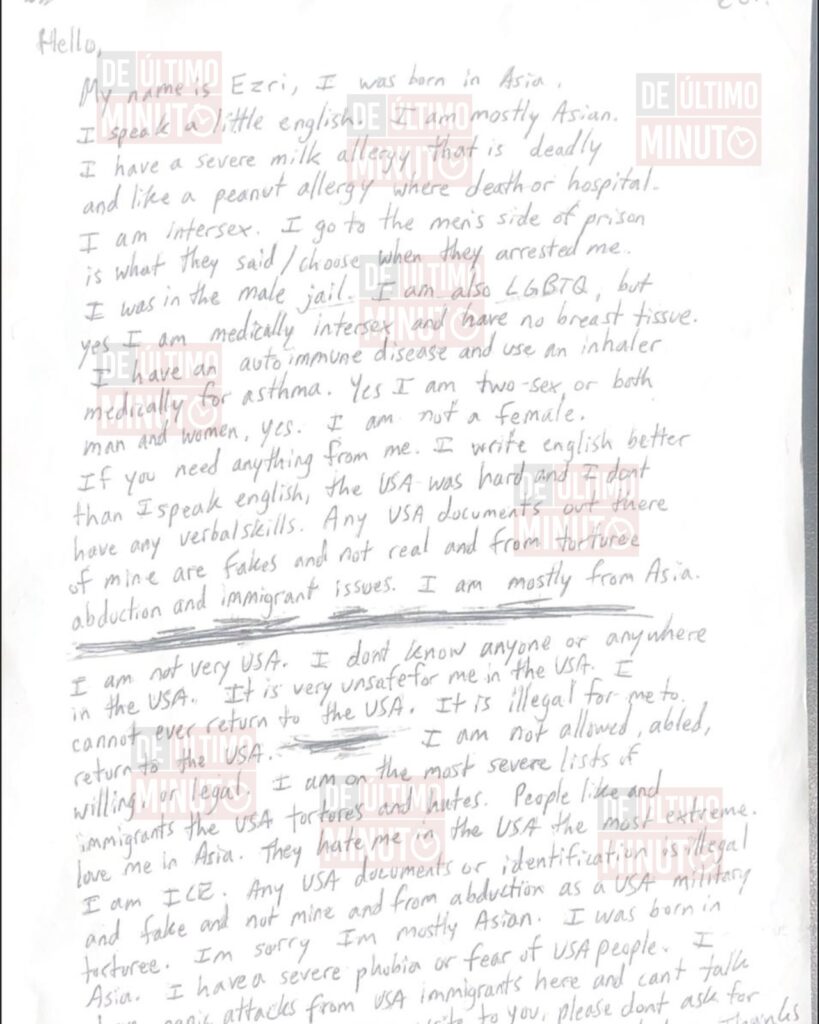 Hello,
My name is Ezri, I was born in Asia.
I speak a little english. I am mostly Asian.
I have a severe milk allergy that is deadly
and like a peanut allergy where death or hospital.
I am intersex. I go to the men's side of prison
is what they said/choose when they arrested me.
I was in the male jail. I am also LGBTQ, but
yes I am medically intersex and have no breast tissue.
I have an autoimmune disease and use an inhaler
medically for asthma. Yes I am two-sex, or both
man and women, yes. I am not a female.
If you need anything from me. I write english better
than I speak english, the USA was hard and I dont
have any verbal skills. Any USA documents out there
of mine are fakes and not real and from torturee
abduction and immigrant issues. I am mostly from Asia.
I am not very USA. I dont know anyone or anywhere
in the USA. It is very unsafe for me in the USA. I
cannot ever return to the USA. It is illegal for me to
return to the USA. I am not allowed, abled,
willing, or legal. I am on the most severe lists of
immigrants the USA tortures and hates. People like and
love me in Asia. They hate me in the USA the most extreme.
I am ICE. Any USA documents or identification is illegal
and fake and not mine and from abduction as a USA military
torturee. Im sorry Im mostly Asian. I was born in
Asia. I have a severe phobia or fear of USA people. I
panic attacks from USA immigrants here and cant talk
to you, please dont ask for
Thanks
DE ÚLTIMO
MINUTO
DE ÚLTIMO
MINUTO
DE ÚLTIMO
MINUTO
DE ÚLTIMO
MINUTO
DE ÚLTIMO
MINUTO
DE ÚLTIMO
MINUTO
DE ÚLTIMO
MINUTO
DE ÚLTIMO
MINUTO
DE ÚLTIMO
MINUTO